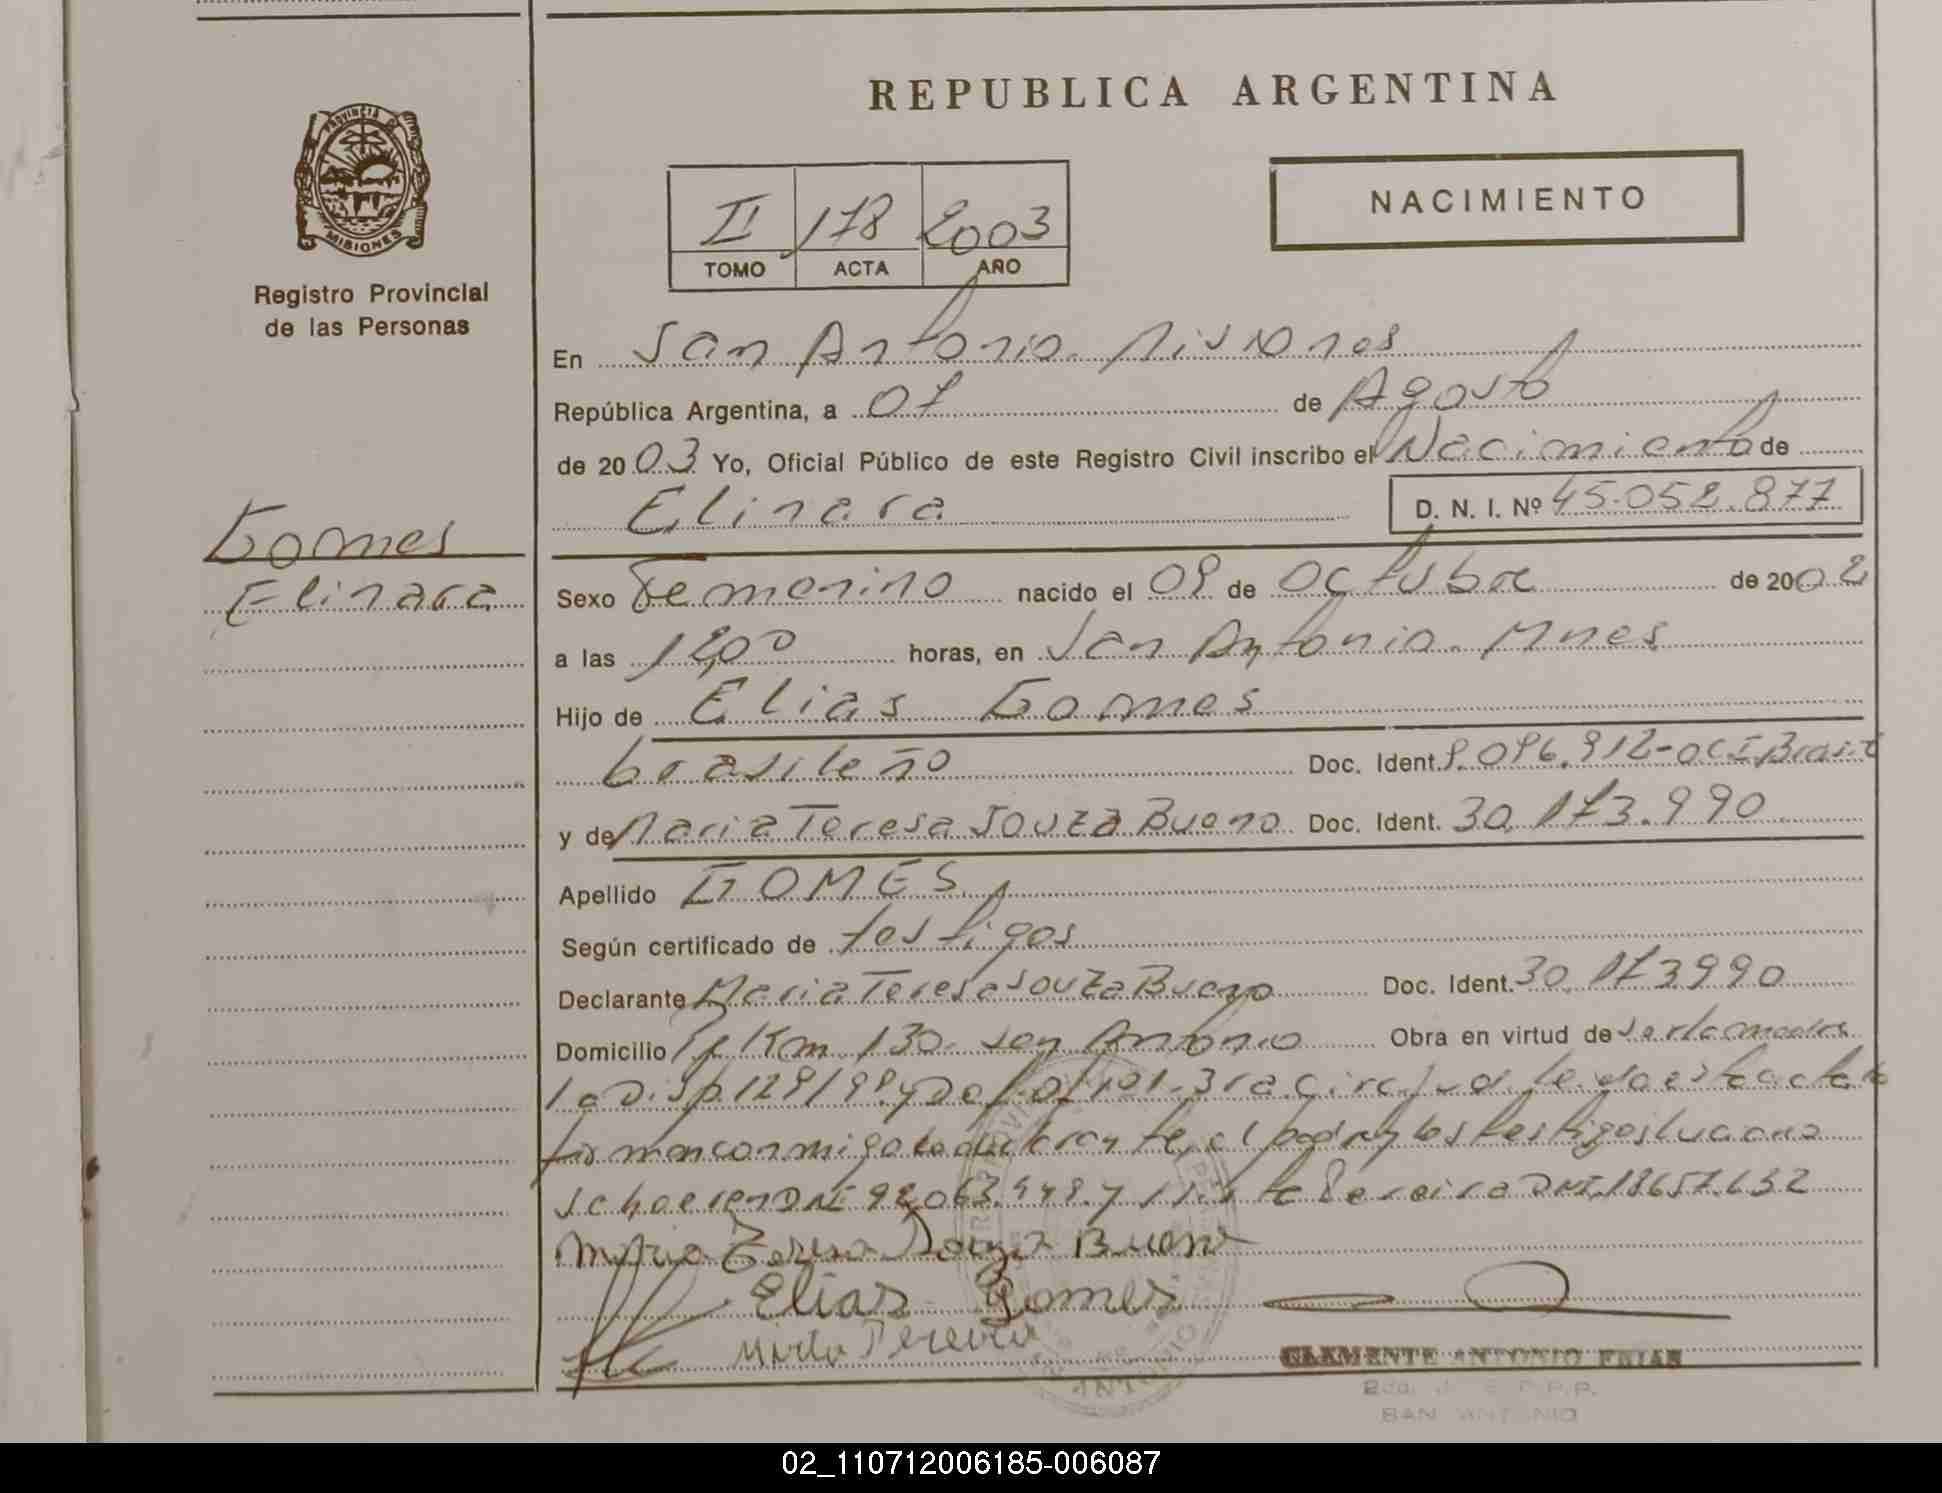 REPUBLICA ARGENTINA
PROVINCIA DE
MISIONES
Registro Provincial
de las Personas
II 178 2003
TOMO ACTA AÑO
NACIMIENTO
En San Antonio. Misiones
República Argentina, a 07 de Agosto
de 2003 Yo, Oficial Público de este Registro Civil inscribo el Nacimiento de
Elinara D. N. I. Nº 45.052.877
Gomes
Elinara
Sexo Femenino nacido el 09 de Octubre de 2002
a las 12,00 horas, en San Antonio. Mnes
Hijo de Elias Gomes
brasileño Doc. Ident. 9.096.912-0 CI Brasil
y de Maria Teresa Souza Bueno Doc. Ident. 30.173.990
Apellido GOMES
Según certificado de testigos
Declarante Maria Teresa Souza Bueno Doc. Ident. 30.173990
Domicilio Km 130. San Antonio Obra en virtud de ser la madre
la Disp. 129/99 y 3ra. leida esta acta la
firman conmigo la declarante, el padre y los testigos Luciano
DNI y Pereira DNI. 18657.632
Maria Teresa Souza Bueno
Elias Gomes
Mirta Pereira
CLEMENTE ANTONIO FRIAS
SAN ANTONIO
02_110712006185-006087